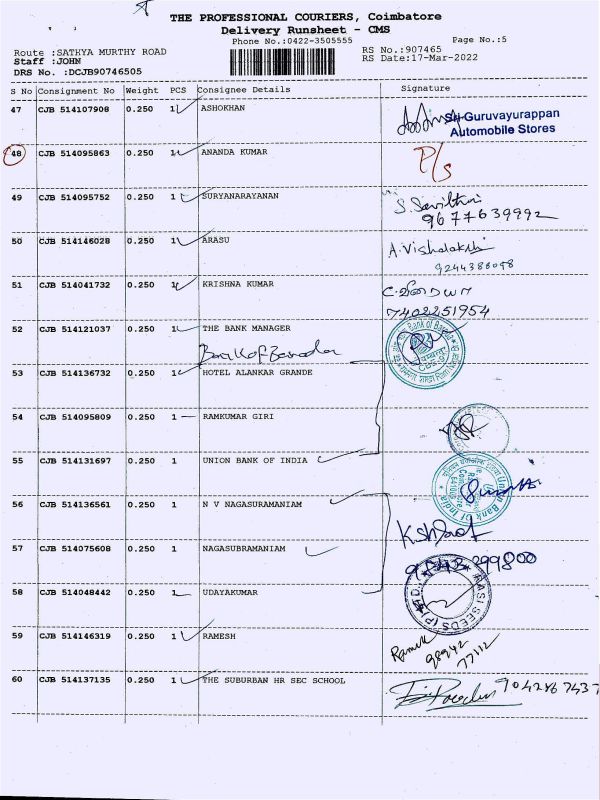 THE PROFESSIONAL COURIERS, Coimbatore
Delivery Runsheet - CMS
Phone No.:0422-3505555 Page No.:5
Route :SATHYA MURTHY ROAD RS No.:907465
Staff :JOHN RS Date:17-Mar-2022
DRS No. :DCJB90746505
S No Consignment No Weight PCS Consignee Details Signature
47 CJB 514107908 0.250 1 ASHOKHAN Sri Guruvayurappan
Automobile Stores
48 CJB 514095863 0.250 1 ANANDA KUMAR P/s
49 CJB 514095752 0.250 1 SURYANARAYANAN S. Savithri
9677639992
50 CJB 514146028 0.250 1 ARASU A. Vishalakshi
9244386098
51 CJB 514041732 0.250 1 KRISHNA KUMAR
7402251954
52 CJB 514121037 0.250 1 THE BANK MANAGER
Bank of Baroda
53 CJB 514136732 0.250 1 HOTEL ALANKAR GRANDE
54 CJB 514095809 0.250 1 RAMKUMAR GIRI
55 CJB 514131697 0.250 1 UNION BANK OF INDIA Union Bank of India
56 CJB 514136561 0.250 1 N V NAGASURAMANIAM
57 CJB 514075608 0.250 1 NAGASUBRAMANIAM
58 CJB 514048442 0.250 1 UDAYAKUMAR RASI SEEDS (P) LTD.
59 CJB 514146319 0.250 1 RAMESH Ramesh
98942
77112
60 CJB 514137135 0.250 1 THE SUBURBAN HR SEC SCHOOL